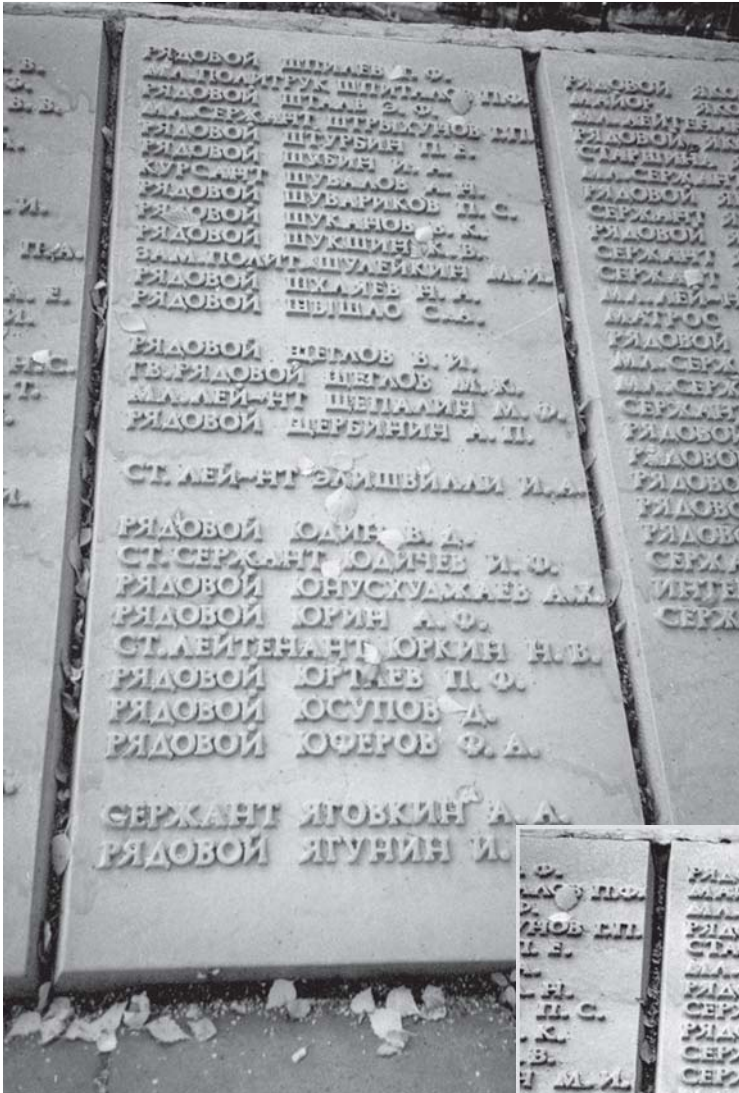 В.
Ф.
В. В.
И.
П.А.
А. Е.
И.
Н.С.
Т.
И.
РЯДОВОЙ ШПИЛЕВ Г. Ф.
МЛ.ПОЛИТРУК ШПИТАЛОВ П.Ф.
РЯДОВОЙ ШТАЛЬ Э. Ф.
МЛ.СЕРЖАНТ ШТРЫХУНОВ Г.П.
РЯДОВОЙ ШТУРБИН П. Е.
РЯДОВОЙ ШУБИН И. А.
КУРСАНТ ШУВАЛОВ А. Н.
РЯДОВОЙ ШУВАРИКОВ П. С.
РЯДОВОЙ ШУКАНОВ В. К.
РЯДОВОЙ ШУКШИН К. В.
ЗАМ.ПОЛИТ. ШУЛЕЙКИН М.И.
РЯДОВОЙ ШХЛЯЕВ Н. А.
РЯДОВОЙ ШЫШЛО С.А.
РЯДОВОЙ ЩЕГЛОВ В. И.
ГВ.РЯДОВОЙ ЩЕГЛОВ М.К.
МЛ.ЛЕЙ-НТ ЩЕПАЛИН М. Ф.
РЯДОВОЙ ЩЕРБИНИН А. П.
СТ. ЛЕЙ-НТ ЭЛИШВИЛЛИ И.А.
РЯДОВОЙ ЮДИН В. Д.
СТ.СЕРЖАНТ ЮДИЧЕВ И. Ф.
РЯДОВОЙ ЮНУСХУДЖАЕВ А.Х.
РЯДОВОЙ ЮРИН А. Ф.
СТ.ЛЕЙТЕНАНТ ЮРКИН Н. В.
РЯДОВОЙ ЮРТАЕВ П. Ф.
РЯДОВОЙ ЮСУПОВ Д.
РЯДОВОЙ ЮФЕРОВ Ф. А.
СЕРЖАНТ ЯГОВКИН А. А.
РЯДОВОЙ ЯГУНИН И.
РЯДОВОЙ ЯКО
МАЙОР ЯКО
МЛ.ЛЕЙТЕНА
РЯДОВОЙ ЯК
СТАРШИНА
МЛ.СЕРЖАН
РЯДОВОЙ Я
СЕРЖАНТ Я
РЯДОВОЙ Я
СЕРЖАНТ
СЕРЖАНТ
МЛ.ЛЕЙ-Н
МАТРОС
РЯДОВОЙ
МЛ.СЕРЖ
МЛ.СЕРЖ
СЕРЖАНТ
РЯДОВОЙ
РЯДОВО
РЯДОВО
РЯДОВО
РЯДОВО
СЕРЖА
ИНТЕ
СЕРЖ
Ф.
АЛОВ П.Ф.
Ф.
УНОВ Г.П.
П. Е.
Н.
П. С.
К.
В.
Н М. И.
РЯД
МА
МЛ
РЯДО
СТА
МЛ.
РЯДО
СЕРЖ
РЯДО
СЕРЖ
СЕРЖ